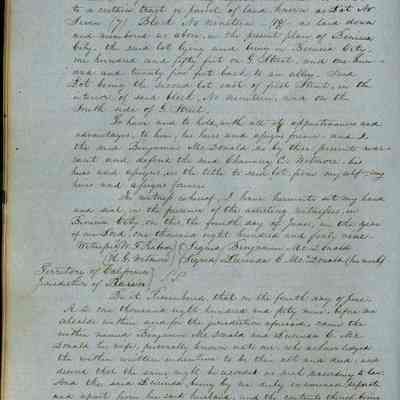 to a certain tract or parcel of land known as Lot No
Seven (7) Block No nineteen (19) as laid down
and numbered as above, in the present plan of Benicia
City, the said lot lying and being in Benicia City,
one hundred and fifty feet on G Street, and one hun-
and twenty five feet back to an alley. Said
Lot being the second lot east of first Street, in the
interior of said block, No nineteen, and on the
North side of G Street.
To have and to hold, with all appurtenances and
advantages, to him, his heirs and assigns forever. and I
the said Benjamin McDonald do by these presents war-
rant and defend the said Chauncey C. Wetmore, his
heirs and assigns, in the title to said lot from myself my
heirs and assigns forever.
In witness whereof, I have hereunto set my hand
and seal, in the presence of the attesting witnesses, in
Benicia City, on this the fourth day of June, in the year
of our Lord, one thousand eight hundred and forty nine.
Witness W. F. (Signed) Benjamin McDonald
(Signed) Lucinda C. McDonald (her mark)
Territory of California
Jurisdiction of
Be it Remembered, that on the fourth day of June
A.D. one thousand eight hundred and forty nine, before me
alcalde within and for the jurisdiction aforesaid, came the
within named Benjamin McDonald and Lucinda C. Mc
Donald his wife, personally known unto me, who acknowledged
the within written indenture to be their act and deed, and
desired that the same might be recorded as such according to law.
And the said Lucinda being by me duly examined separate
and apart from her said husband, and the contents thereof being